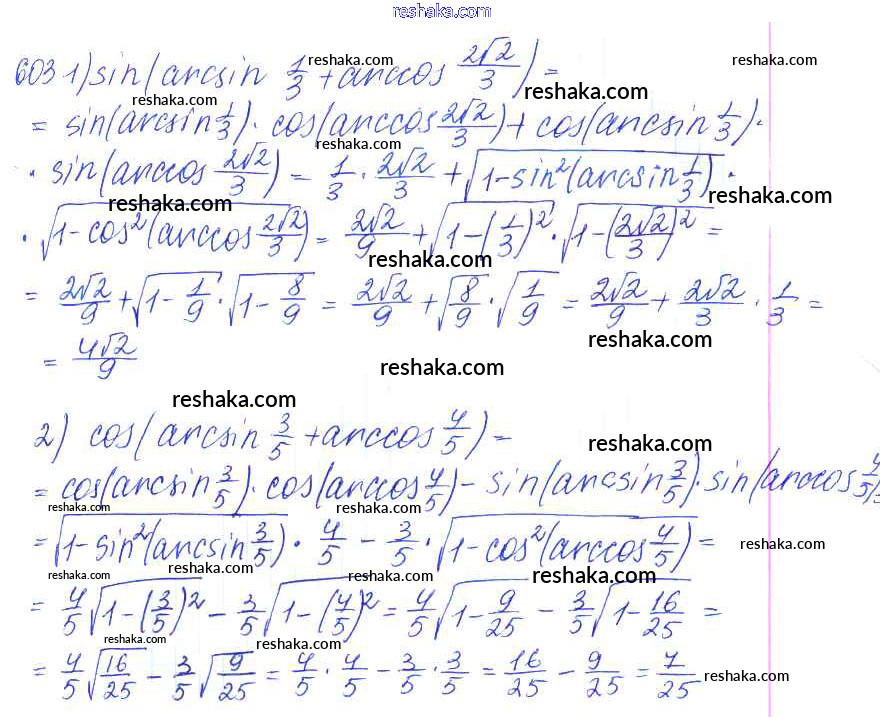 reshaka.com
603 1) sin(arcsin 1/3 + arccos 2√2/3) =
reshaka.com reshaka.com reshaka.com reshaka.com
= sin(arcsin 1/3) · cos(arccos 2√2/3) + cos(arcsin 1/3) ·
reshaka.com
· sin(arccos 2√2/3) = 1/3 · 2√2/3 + √(1-sin²(arcsin 1/3)) ·
reshaka.com reshaka.com
· √(1-cos²(arccos 2√2/3)) = 2√2/9 + √(1-(1/3)²) · √(1-(2√2/3)²) =
reshaka.com
= 2√2/9 + √(1-1/9) · √(1-8/9) = 2√2/9 + √(8/9) · √(1/9) = 2√2/9 + 2√2/3 · 1/3 =
reshaka.com
= 4√2/9
reshaka.com
reshaka.com
2) cos(arcsin 3/5 + arccos 4/5) =
reshaka.com
= cos(arcsin 3/5) · cos(arccos 4/5) - sin(arcsin 3/5) · sin(arccos 4/5) =
reshaka.com reshaka.com reshaka.com
= √(1-sin²(arcsin 3/5)) · 4/5 - 3/5 · √(1-cos²(arccos 4/5)) =
reshaka.com
reshaka.com reshaka.com
= 4/5 √(1-(3/5)²) - 3/5 √(1-(4/5)²) = 4/5 √(1-9/25) - 3/5 √(1-16/25) =
reshaka.com reshaka.com
= 4/5 √(16/25) - 3/5 √(9/25) = 4/5 · 4/5 - 3/5 · 3/5 = 16/25 - 9/25 = 7/25
reshaka.com